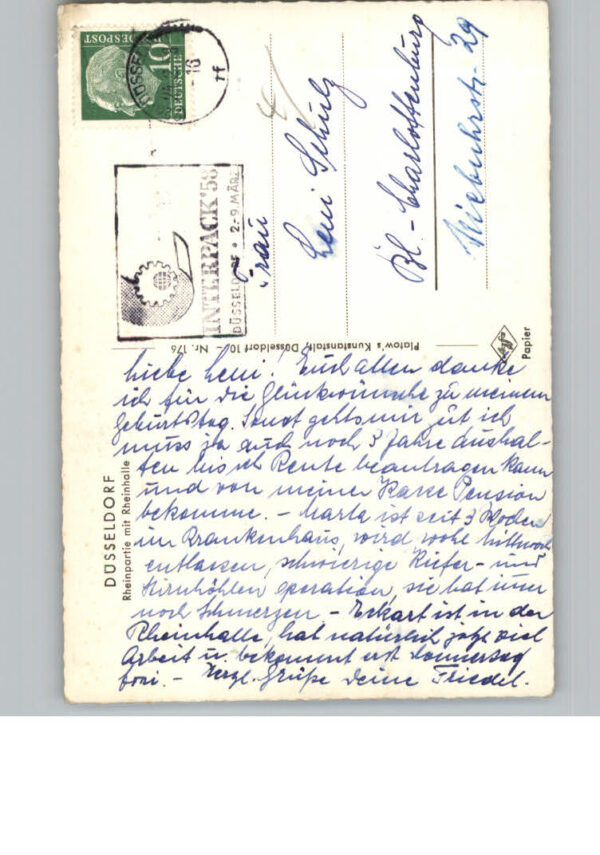 DÜSSELDORF
Rheinpartie mit Rheinhalle
Liebe Leni! Euch allen danke
ich für die Glückwünsche zu meinem
Geburtstag. Sonst gehts mir gut ich
muss ja auch noch 3 Jahre aushal-
ten bis ich Rente beantragen kann
und von meiner Kasse Pension
bekomme. – Marta ist seit 3 Wochen
im Krankenhaus, wird wohl Mittwoch
entlassen, schwierige Kiefer- und
Stirnhöhlen operation, sie hat immer
noch Schmerzen – Eckart ist in der
Rheinhalle, hat natürlich jetzt viel
Arbeit u. bekommt erst Donnerstag
frei. – Herzl. Grüße Deine Friedel.
Platow's Kunstanstalt, Düsseldorf 10 – Nr. 176
Papier
INTERPACK '58
DÜSSELDORF • 2.-9. MÄRZ
DEUTSCHE
BUNDESPOST
10
16
ff
Frau
Leni Schulz
Bl.-Charlottenburg
Niebuhrstr. 29